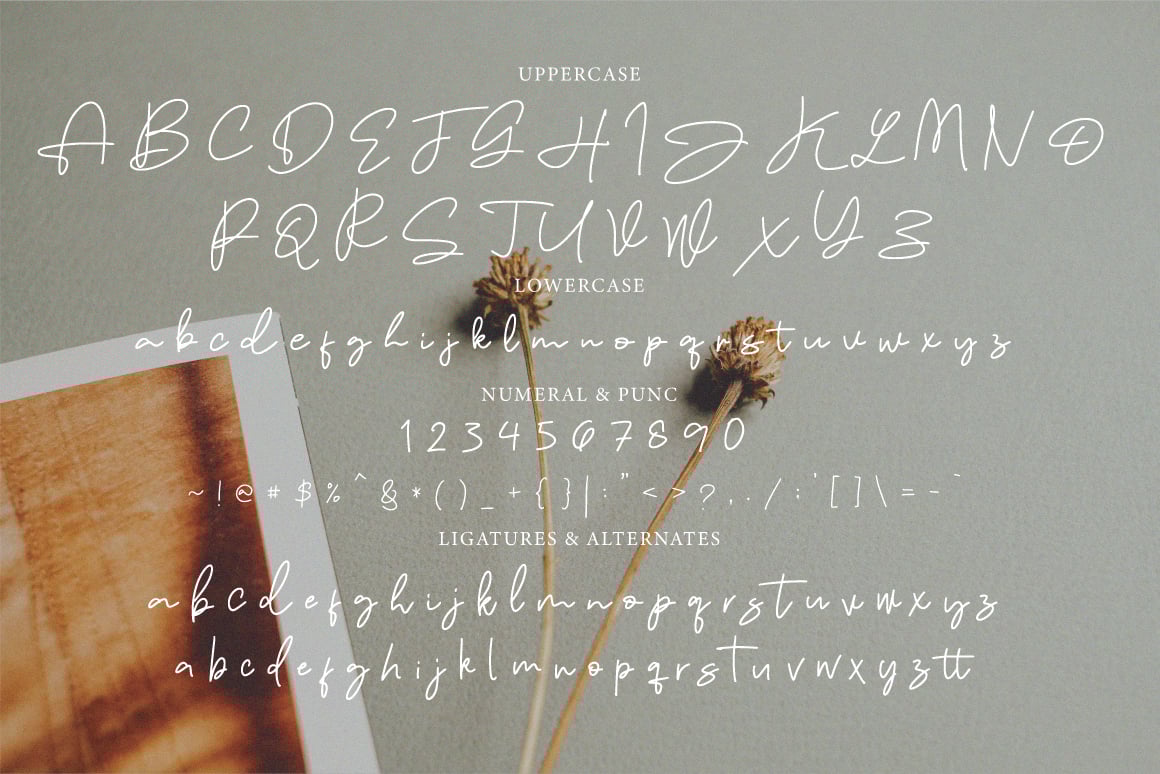 UPPERCASE
A B C D E F G H I J K L M N O
P Q R S T U V W X Y Z
LOWERCASE
a b c d e f g h i j k l m n o p q r s t u v w x y z
NUMERAL & PUNC
1 2 3 4 5 6 7 8 9 0
~ ! @ # $ % ^ & * ( ) _ + { } | : " < > ? , . / ; ' [ ] \ = - `
LIGATURES & ALTERNATES
a b c d e f g h i j k l m n o p q r s t u v w x y z
a b c d e f g h i j k l m n o p q r s t u v w x y z tt